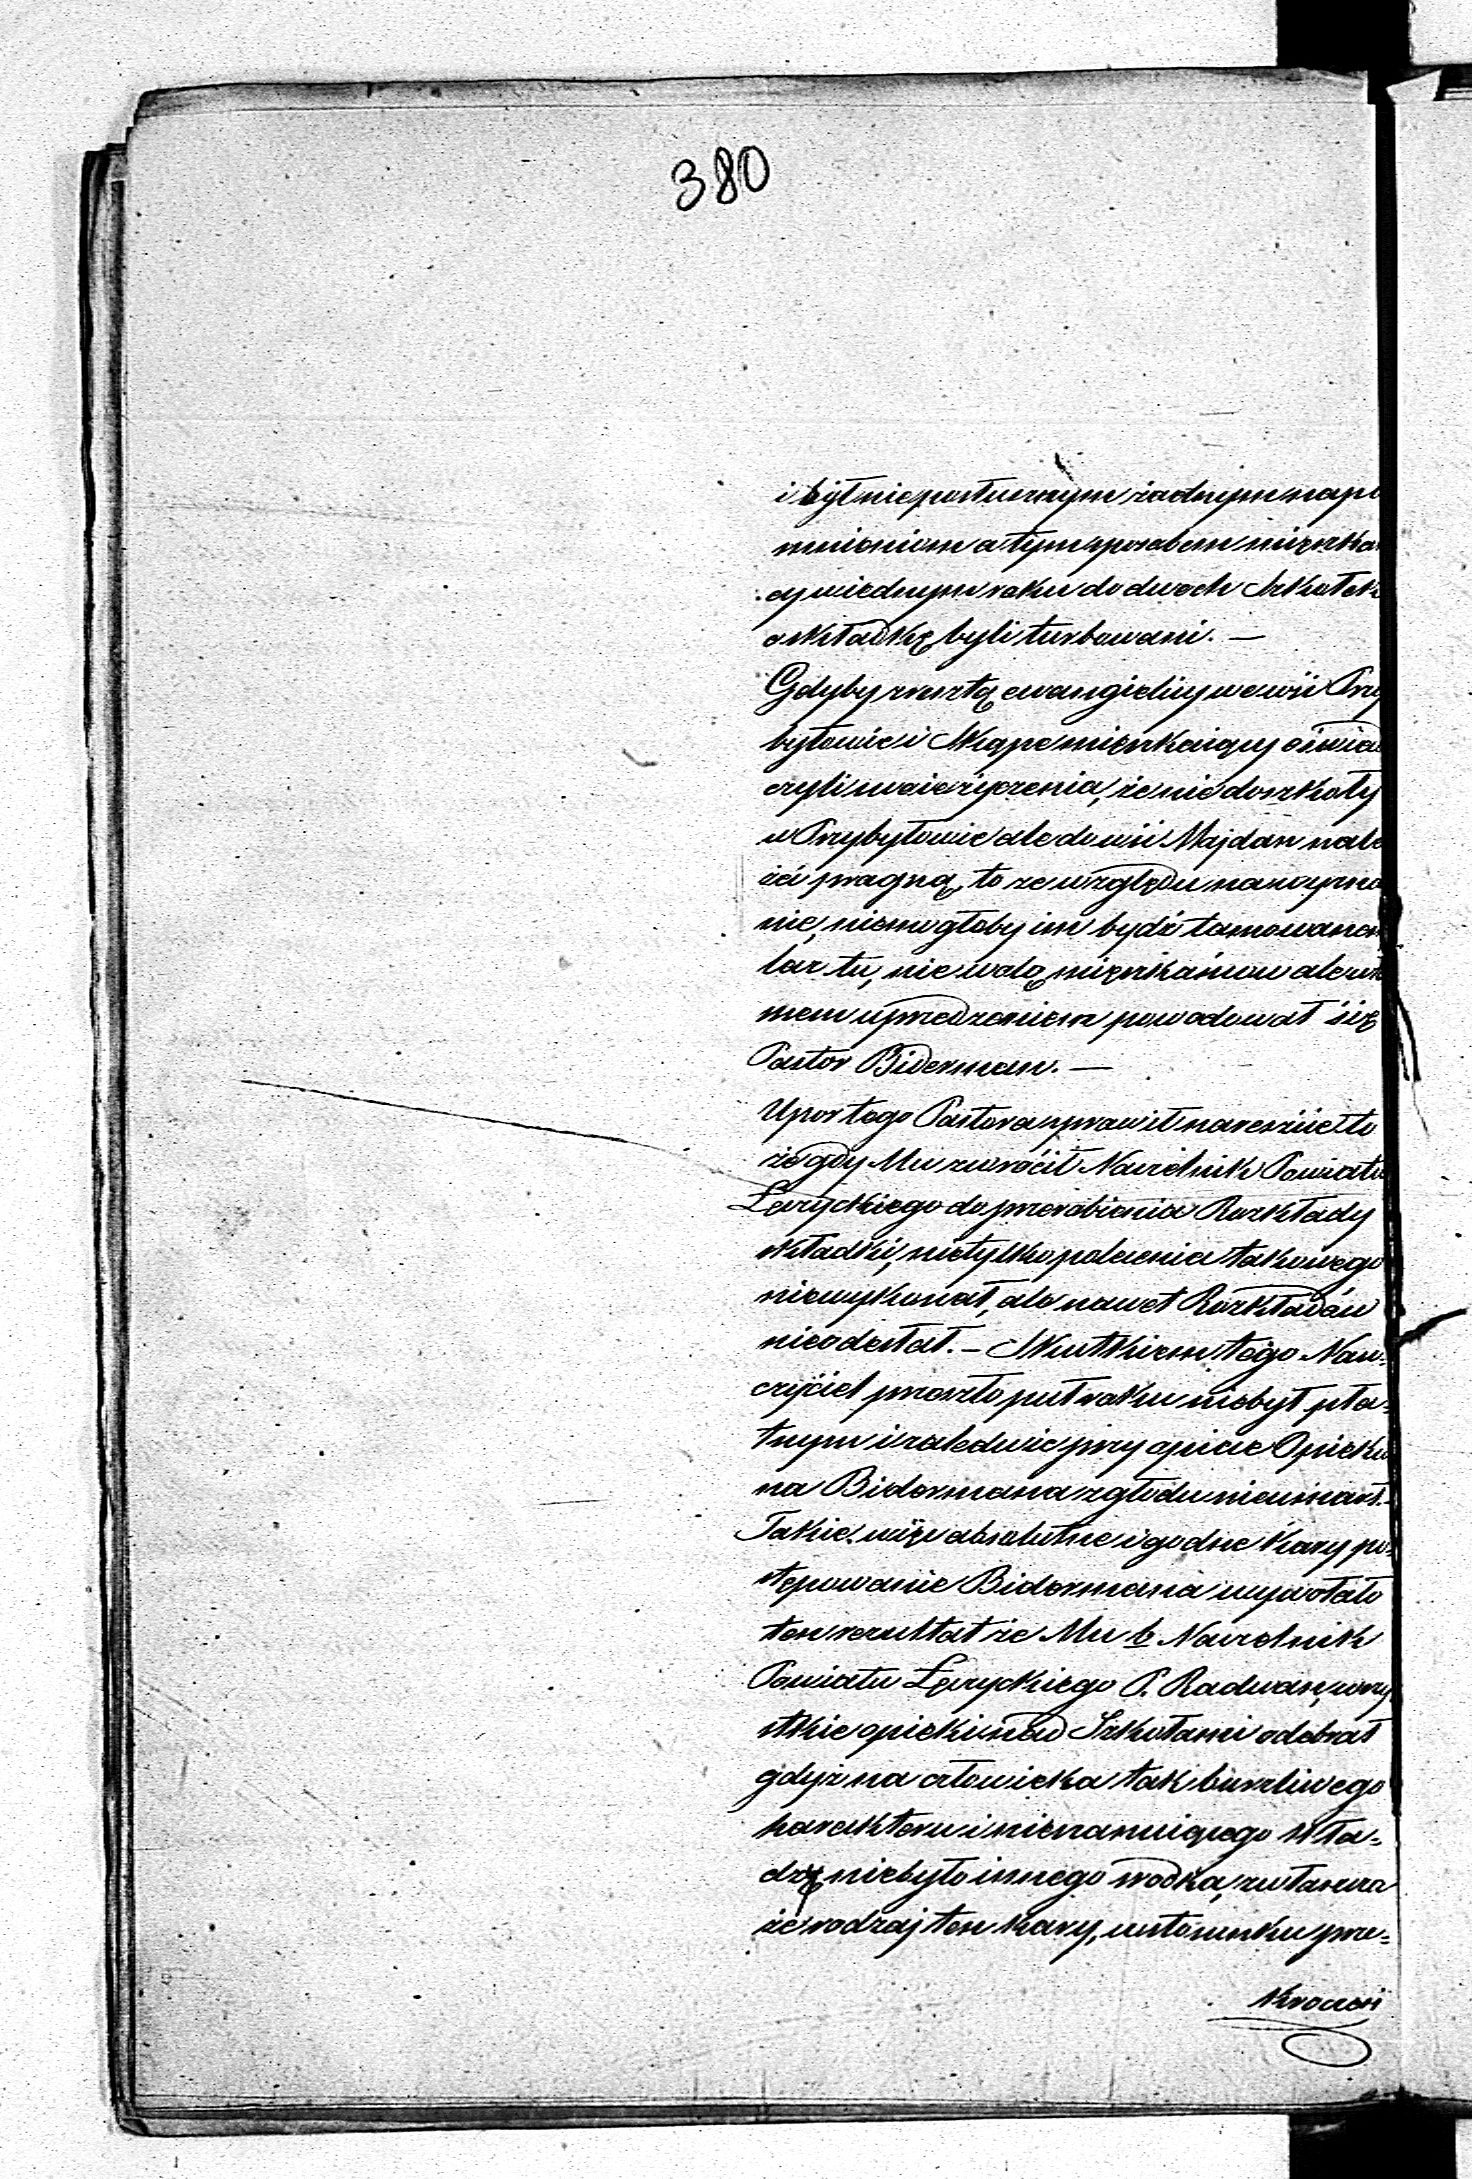 380
i był nieposłusznym żadnym napo
mnieniom a tym sposobem mięszka
cy w jednym roku do dwoch Szkołek
o składkę byli turbowani. —
Gdyby zresztą ewangielicy we wsi Przy
byłowie i Skąpe mięszkaiący oświad
czyli swoie życzenia, że nie do szkoły
w Przybyłowie ale do wsi Majdan nale
żeć pragną, to ze względu na wyzna
nie, niemogłoby im bydź tamowanem
lecz tu, nie wolą mięszkańcow ale
mem uprzedzeniem powodował się
Pastor Biderman. —
Upor tego Pastora sprawił nareszcie to
że gdy Mu zwrócił Naczelnik Powiatu
Łęczyckiego do przerobienia Rozkłady
składki, nietylko polecenia takowego
niewykonał, ale nawet Rozkładów
nieodesłał. — Skutkiem tego Nau-
czyciel przeszło puł roku niebył pła-
tnym i zaledwie przy opiece Opieku
na Bidermana z głodu nieumarł. -
Takie więc absolutne i godne kary po-
stępowanie Bidermana wywołało
ten rezultat że Mu b. Naczelnik
Powiatu Łęczyckiego P. Radwan, wszy
stkie opieki nad Szkołami odebrał
gdyż na człowieka tak burzliwego
harakteru i nieznaiącego Wła-
dzę niebyło innego srodka, zwłaszcza
że rodzaj ten kary, w stosunku prze-
kroczeń